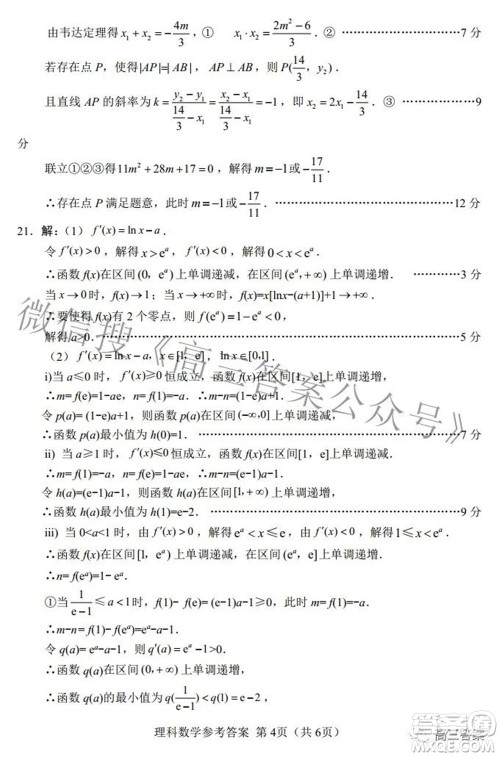 由韦达定理得 x₁+x₂=-4m/3，① x₁·x₂=(2m²-6)/3．② ……………………7 分
若存在点 P，使得|AP|=|AB|，AP⊥AB，则 P(14/3, y₂)．
且直线 AP 的斜率为 k=(y₂-y₁)/(14/3-x₁)=(x₂-x₁)/(14/3-x₁)=-1，即 x₂=2x₁-14/3．③ …………………9
分
联立①②③得 11m²+28m+17=0，解得 m=-1或-17/11．
∴存在点 P 满足题意，此时 m=-1或-17/11．……………………12 分
21．解：（1） f′(x)=ln x-a．
令 f′(x)>0，解得 x>eᵃ，令 f′(x)<0，解得 0<x<eᵃ．
∴函数 f(x)在区间(0，eᵃ)上单调递减，在区间(eᵃ,+∞)上单调递增．…………3 分
当 x→0 时，f(x)→1；当 x→+∞时，f(x)=x[lnx-(a+1)]+1→+∞．
∴要使得 f(x)有 2 个零点，则 f(eᵃ)=1-eᵃ<0，
解得 a>0．……………………5 分
（2） f′(x)=ln x-a，x∈[1，e]，ln x∈[0,1]．
i)当 a≤0 时，f′(x)≥0 恒成立，函数 f(x)在区间[1, e]上单调递增，
∴m=f(e)=1-ae，n=f(1)=-a．
令 p(a)= (1-e)a+1，则函数 p(a)在区间(-∞,0]上单调递减，
∴函数 p(a)最小值为 h(0)=1．……………………7 分
ii) 当 a≥1 时，f′(x)≤0 恒成立，函数 f(x)在区间[1，e]上单调递减，
∴m= f(1)=-a，n= f(e)=1-ae，∴m-n= (e-1)a-1．
令 h(a)=(e-1)a-1，则函数 h(a)在区间[1,+∞)上单调递增，
∴函数 h(a)最小值为 h(1)=e-2．……………………9 分
iii) 当 0<a<1 时，由 f′(x)>0，解得 eᵃ<x≤e，由 f′(x)<0，解得 1≤x<eᵃ．
∴函数 f(x)在区间[1，eᵃ)上单调递减，在区间(eᵃ，e]上单调递增．
∴n= f(eᵃ)=1- eᵃ．
①当 1/(e-1)≤a<1 时，f(1)- f(e)= (e-1)a-1≥0，此时 m=f(1)=-a．
∴m-n= f(1)- f(eᵃ)= eᵃ-a-1．
令 q(a)= eᵃ-a-1，则 q′(a)= eᵃ-1>0．
∴函数 q(a)在区间(0,+∞)上单调递增，
∴函数 q(a)的最小值为 q(1/(e-1))<q(1)=e-2，
理科数学参考答案 第 4页（共 6页）
微信搜《高三答案公众号》
高三答案